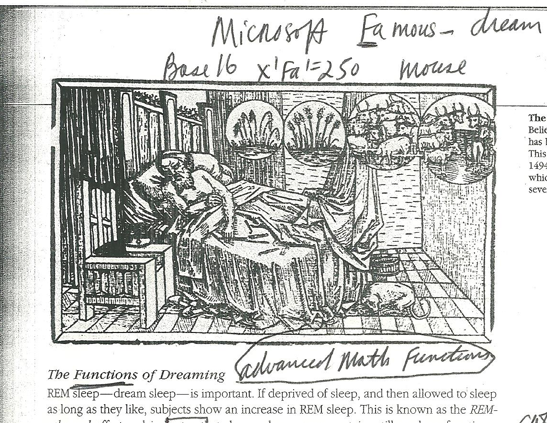 Microsoft Famous - dream
Base 16 x'Fa'=250 mouse
The
Belie
has
This
1494
whic
seve
advanced Math Functions
The Functions of Dreaming
REM sleep—dream sleep—is important. If deprived of sleep, and then allowed to sleep
as long as they like, subjects show an increase in REM sleep. This is known as the REM-